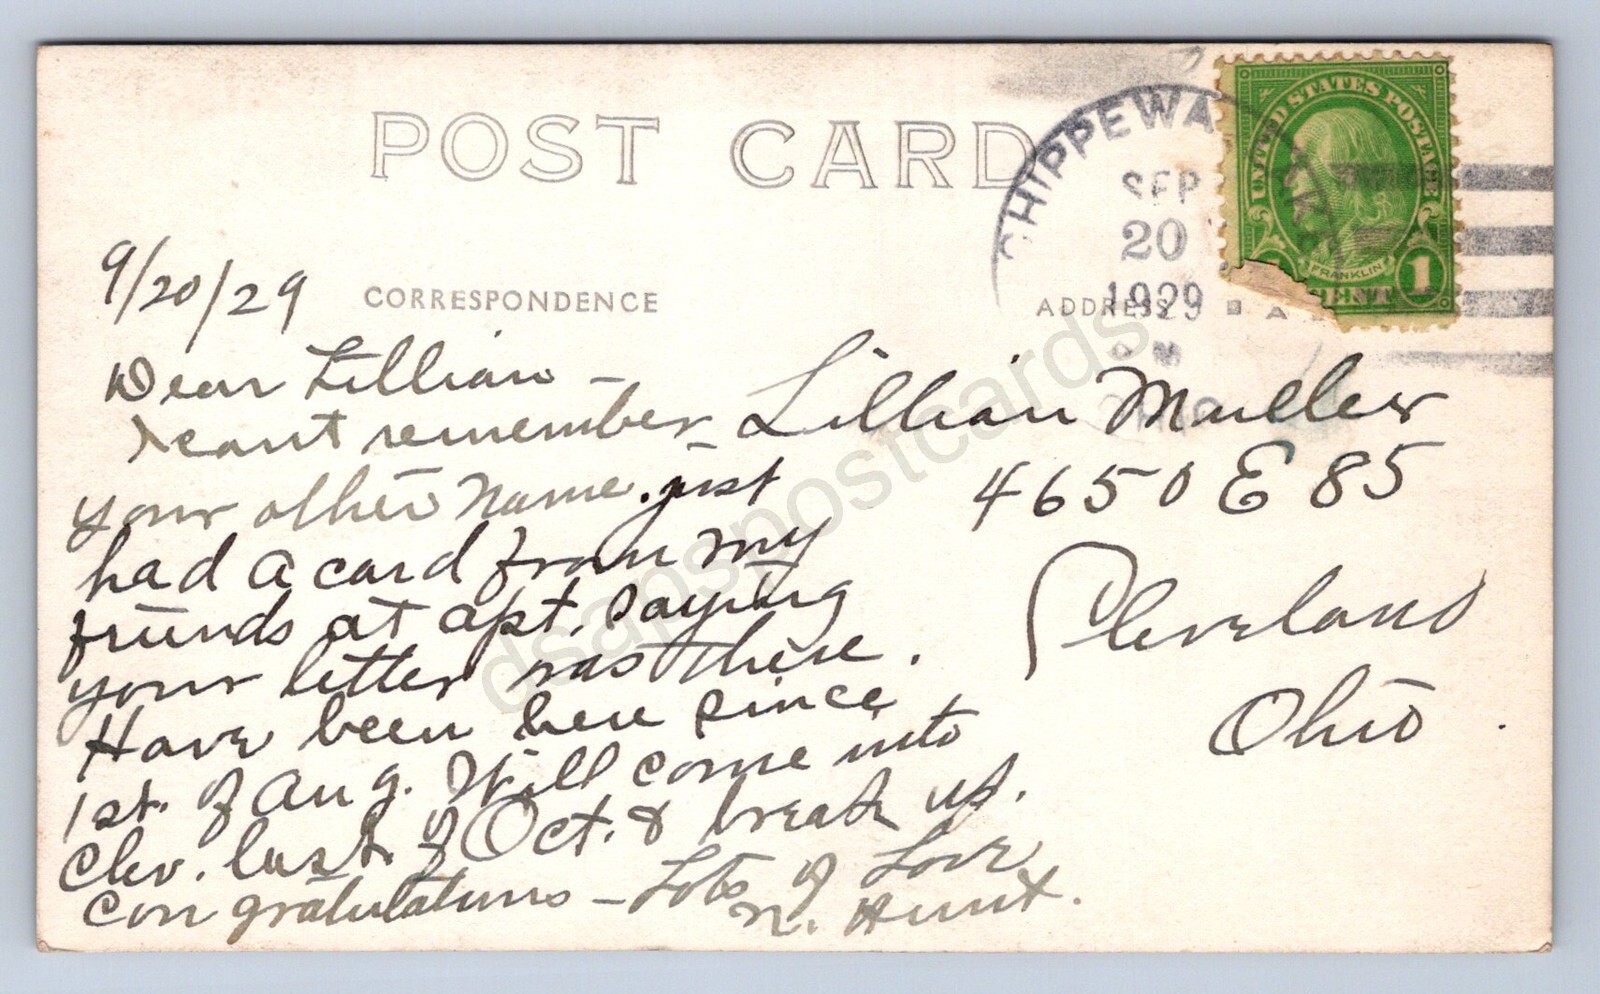 POST CARD
CHIPPEWA LAKE
SEP
20
1929
UNITED STATES POSTAGE
FRANKLIN
1 CENT
9/20/29
CORRESPONDENCE
ADDRESS
Dear Lillian –
I cant remember
your other name. just
had a card from my
friends at apt. saying
your letter was there.
Have been here since
1st. of Aug. Will come into
Clev. last. of Oct. & break up.
Congratulations – Lots of Love
N. Hunt.
Lillian Mueller
4650 E 85
Cleveland
Ohio.
dsapspostcards